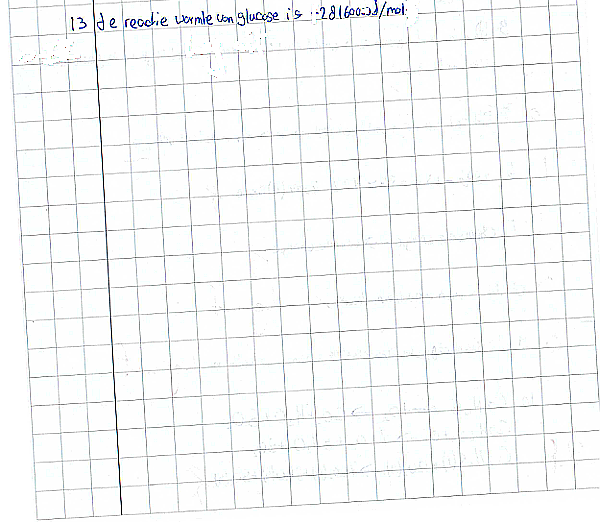 13 de reactie warmte van glucose is -2816000 J/mol.